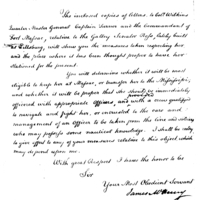 The enclosed copies of letters to Cap^t. Wilkins
Quarter Master General Captain Turner and the Commandant of
Fort Massac, relative to the Galley Senator Ross, lately built
at Pittsburg, will shew you the measures taken regarding her
and the place where it has been thought proper to have her
stationed for the present.
You will determine whether it will be most
eligible to keep her at Massac, or transfer her to the Mississippi,
and whether it will be proper that she should be immediately
officered with appropriate Officers, and with a crew
to navigate and fight her, or intrusted to the care and
management of an Officer to be taken from the line and
who may possess some nautical knowledge. I shall be ready
to give effect to any of your measures relative to this object which
may depend upon me.
With great Respect I have the honor to be
Sir
Your Most Obedient Servant
James McHenry